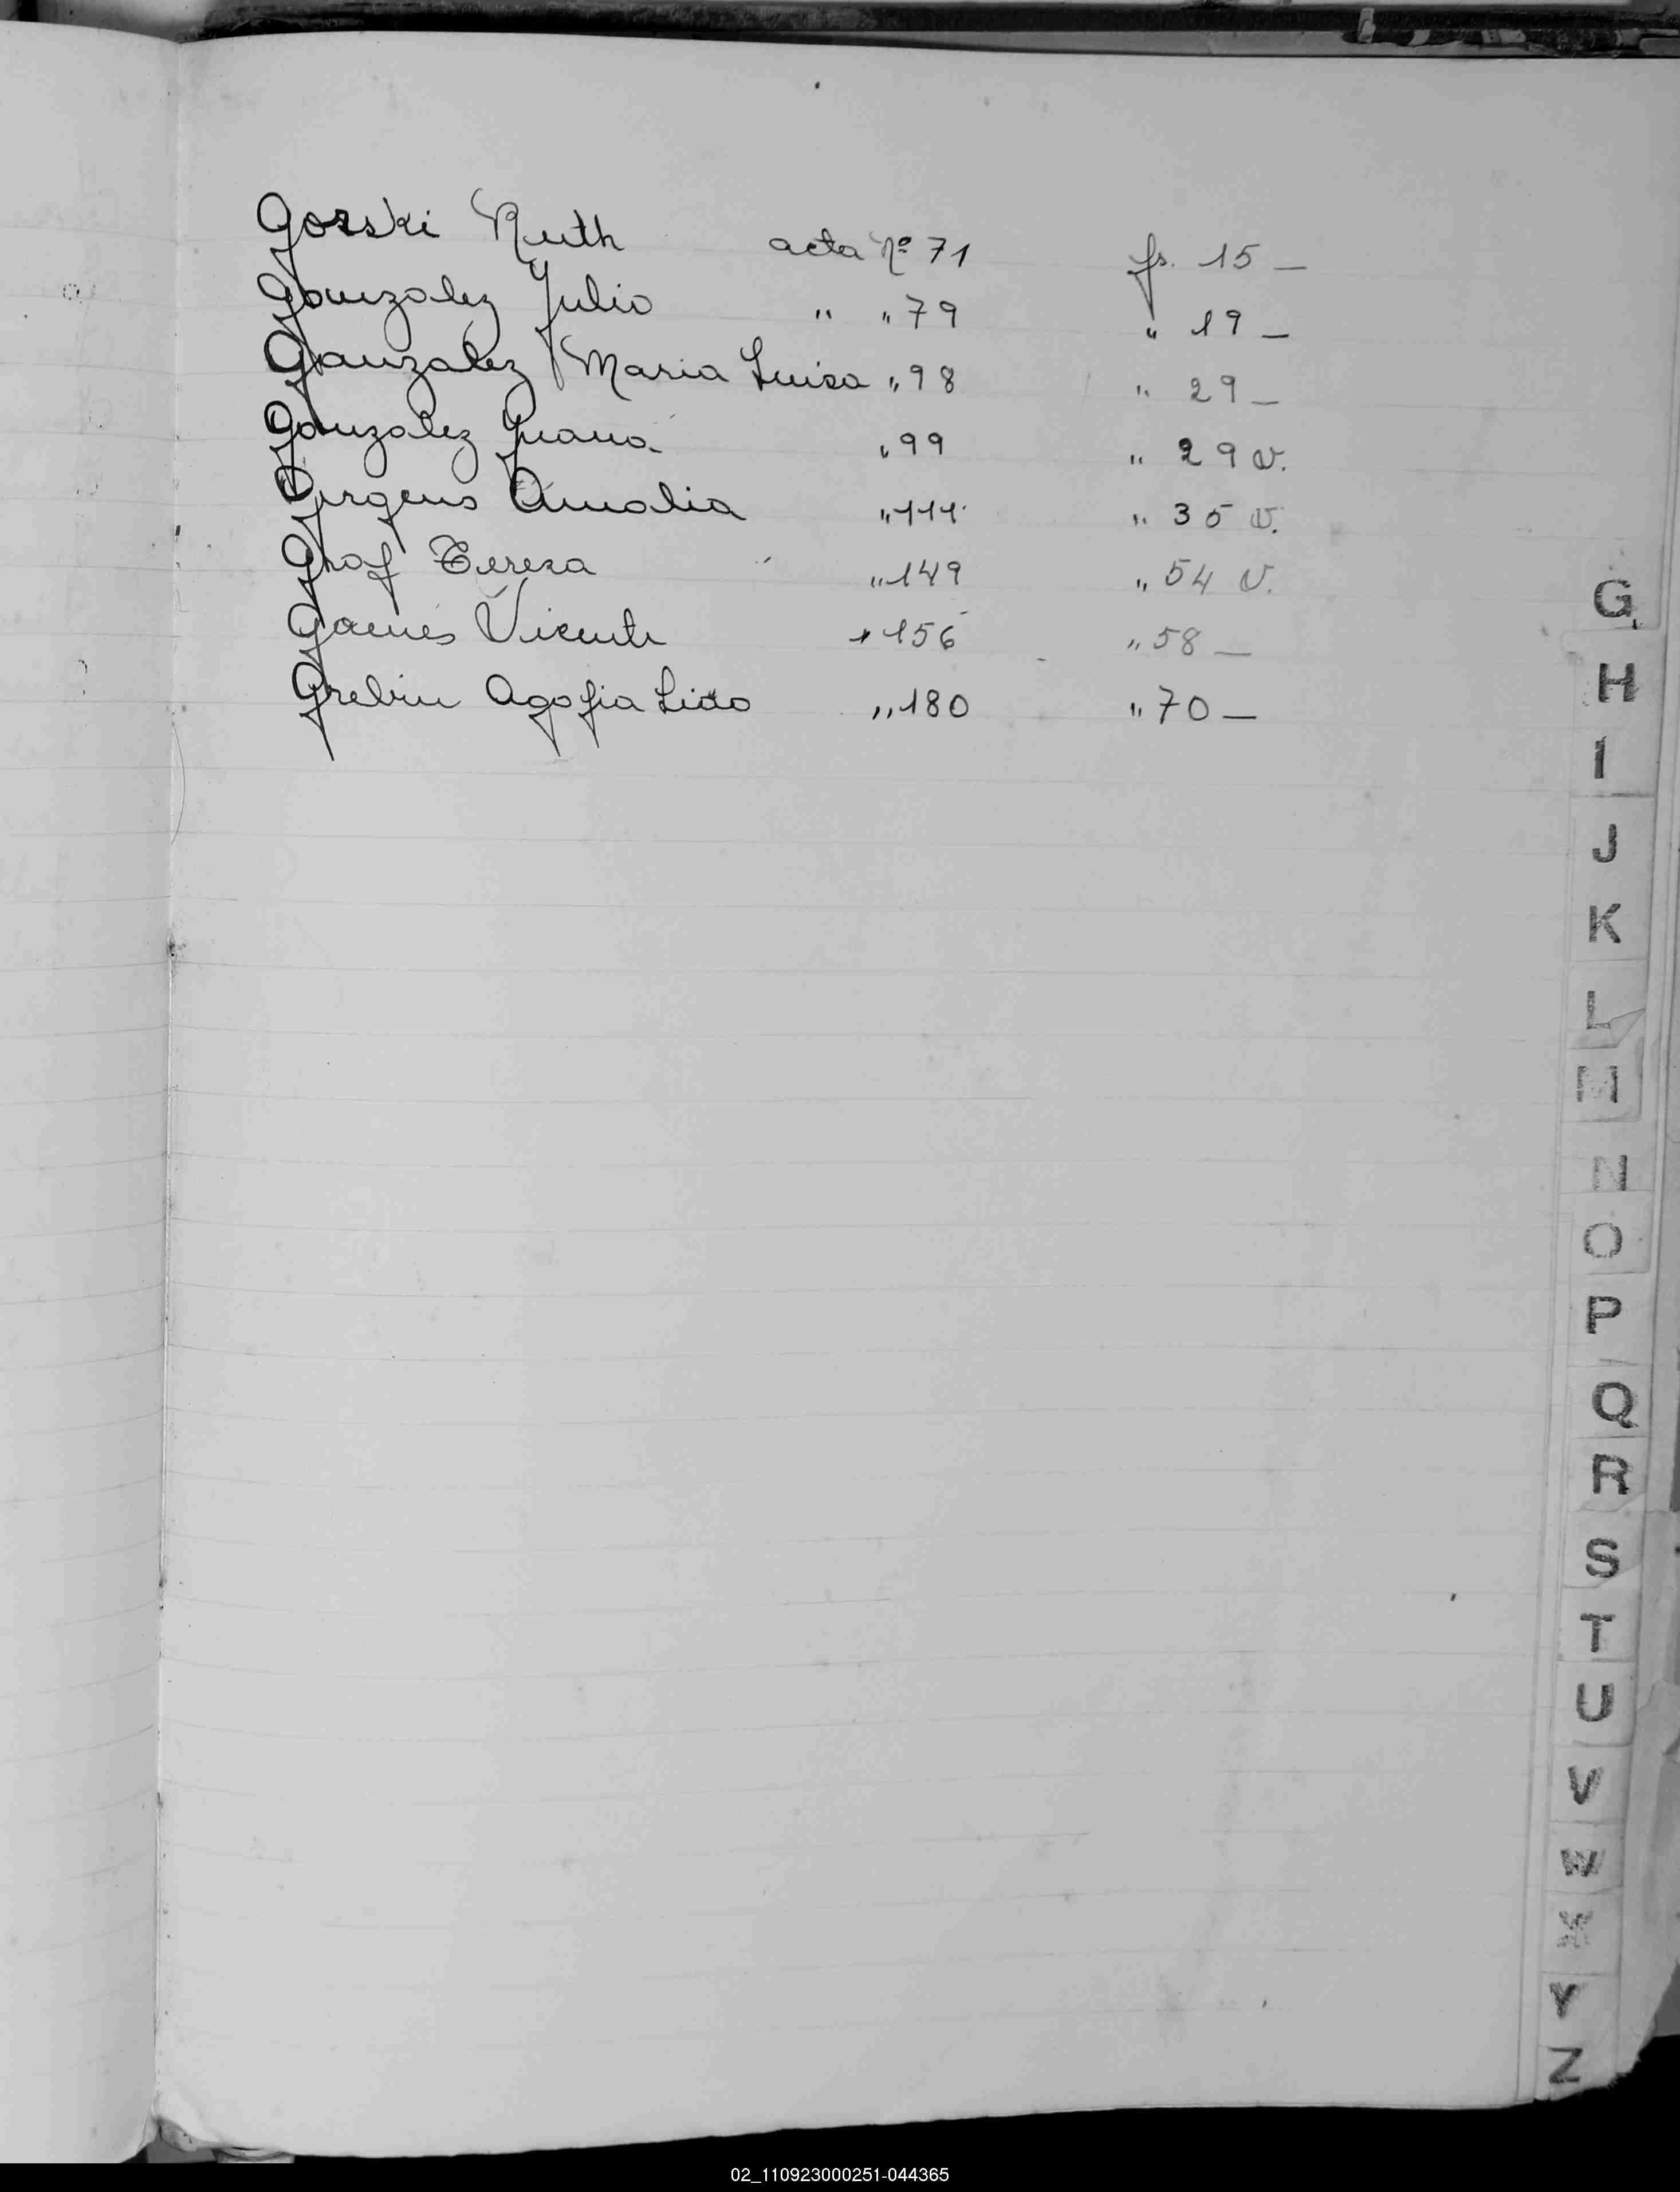 Gorski Ruth acta Nº 71 fs. 15 —
Gonzalez Julio " " 79 " 19 —
Gonzalez Maria Luisa " 98 " 29 —
Gonzalez Juana " 99 " 29 v.
Amalia " 111 " 35 v.
Graf Tereza " 149 " 54 v.
Vicente " 156 " 58 —
Grebin Agofia Lido " 180 " 70 —
G
H
I
J
K
L
M
N
O
P
Q
R
S
T
U
V
W
X
Y
Z
02_110923000251-044365